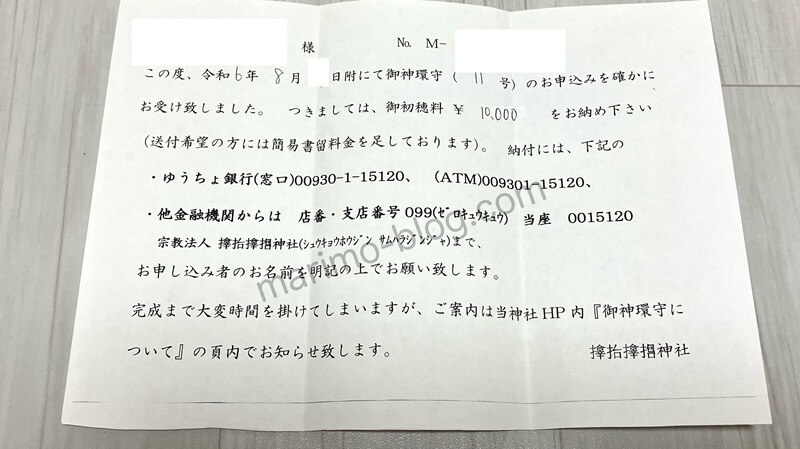 様 No. M-
この度、令和6年 8月 日附にて御神環守( 11 号)のお申込みを確かに
お受け致しました。 つきましては、御初穂料 ¥ 10,000 をお納め下さい
(送付希望の方には簡易書留料金を足しております)。 納付には、下記の
・ゆうちょ銀行(窓口)00930-1-15120、 (ATM)009301-15120、
・他金融機関からは 店番・支店番号 099(ｾﾞﾛｷｭｳｷｭｳ) 当座 0015120
宗教法人 (ｼｭｳｷｮｳﾎｳｼﾞﾝ ｻﾑﾊﾗｼﾞﾝｼﾞｬ)まで、
お申し込み者のお名前を明記の上でお願い致します。
完成まで大変時間を掛けてしまいますが、ご案内は当神社HP内『御神環守に
ついて』の頁内でお知らせ致します。 神社
marimo-blog.com